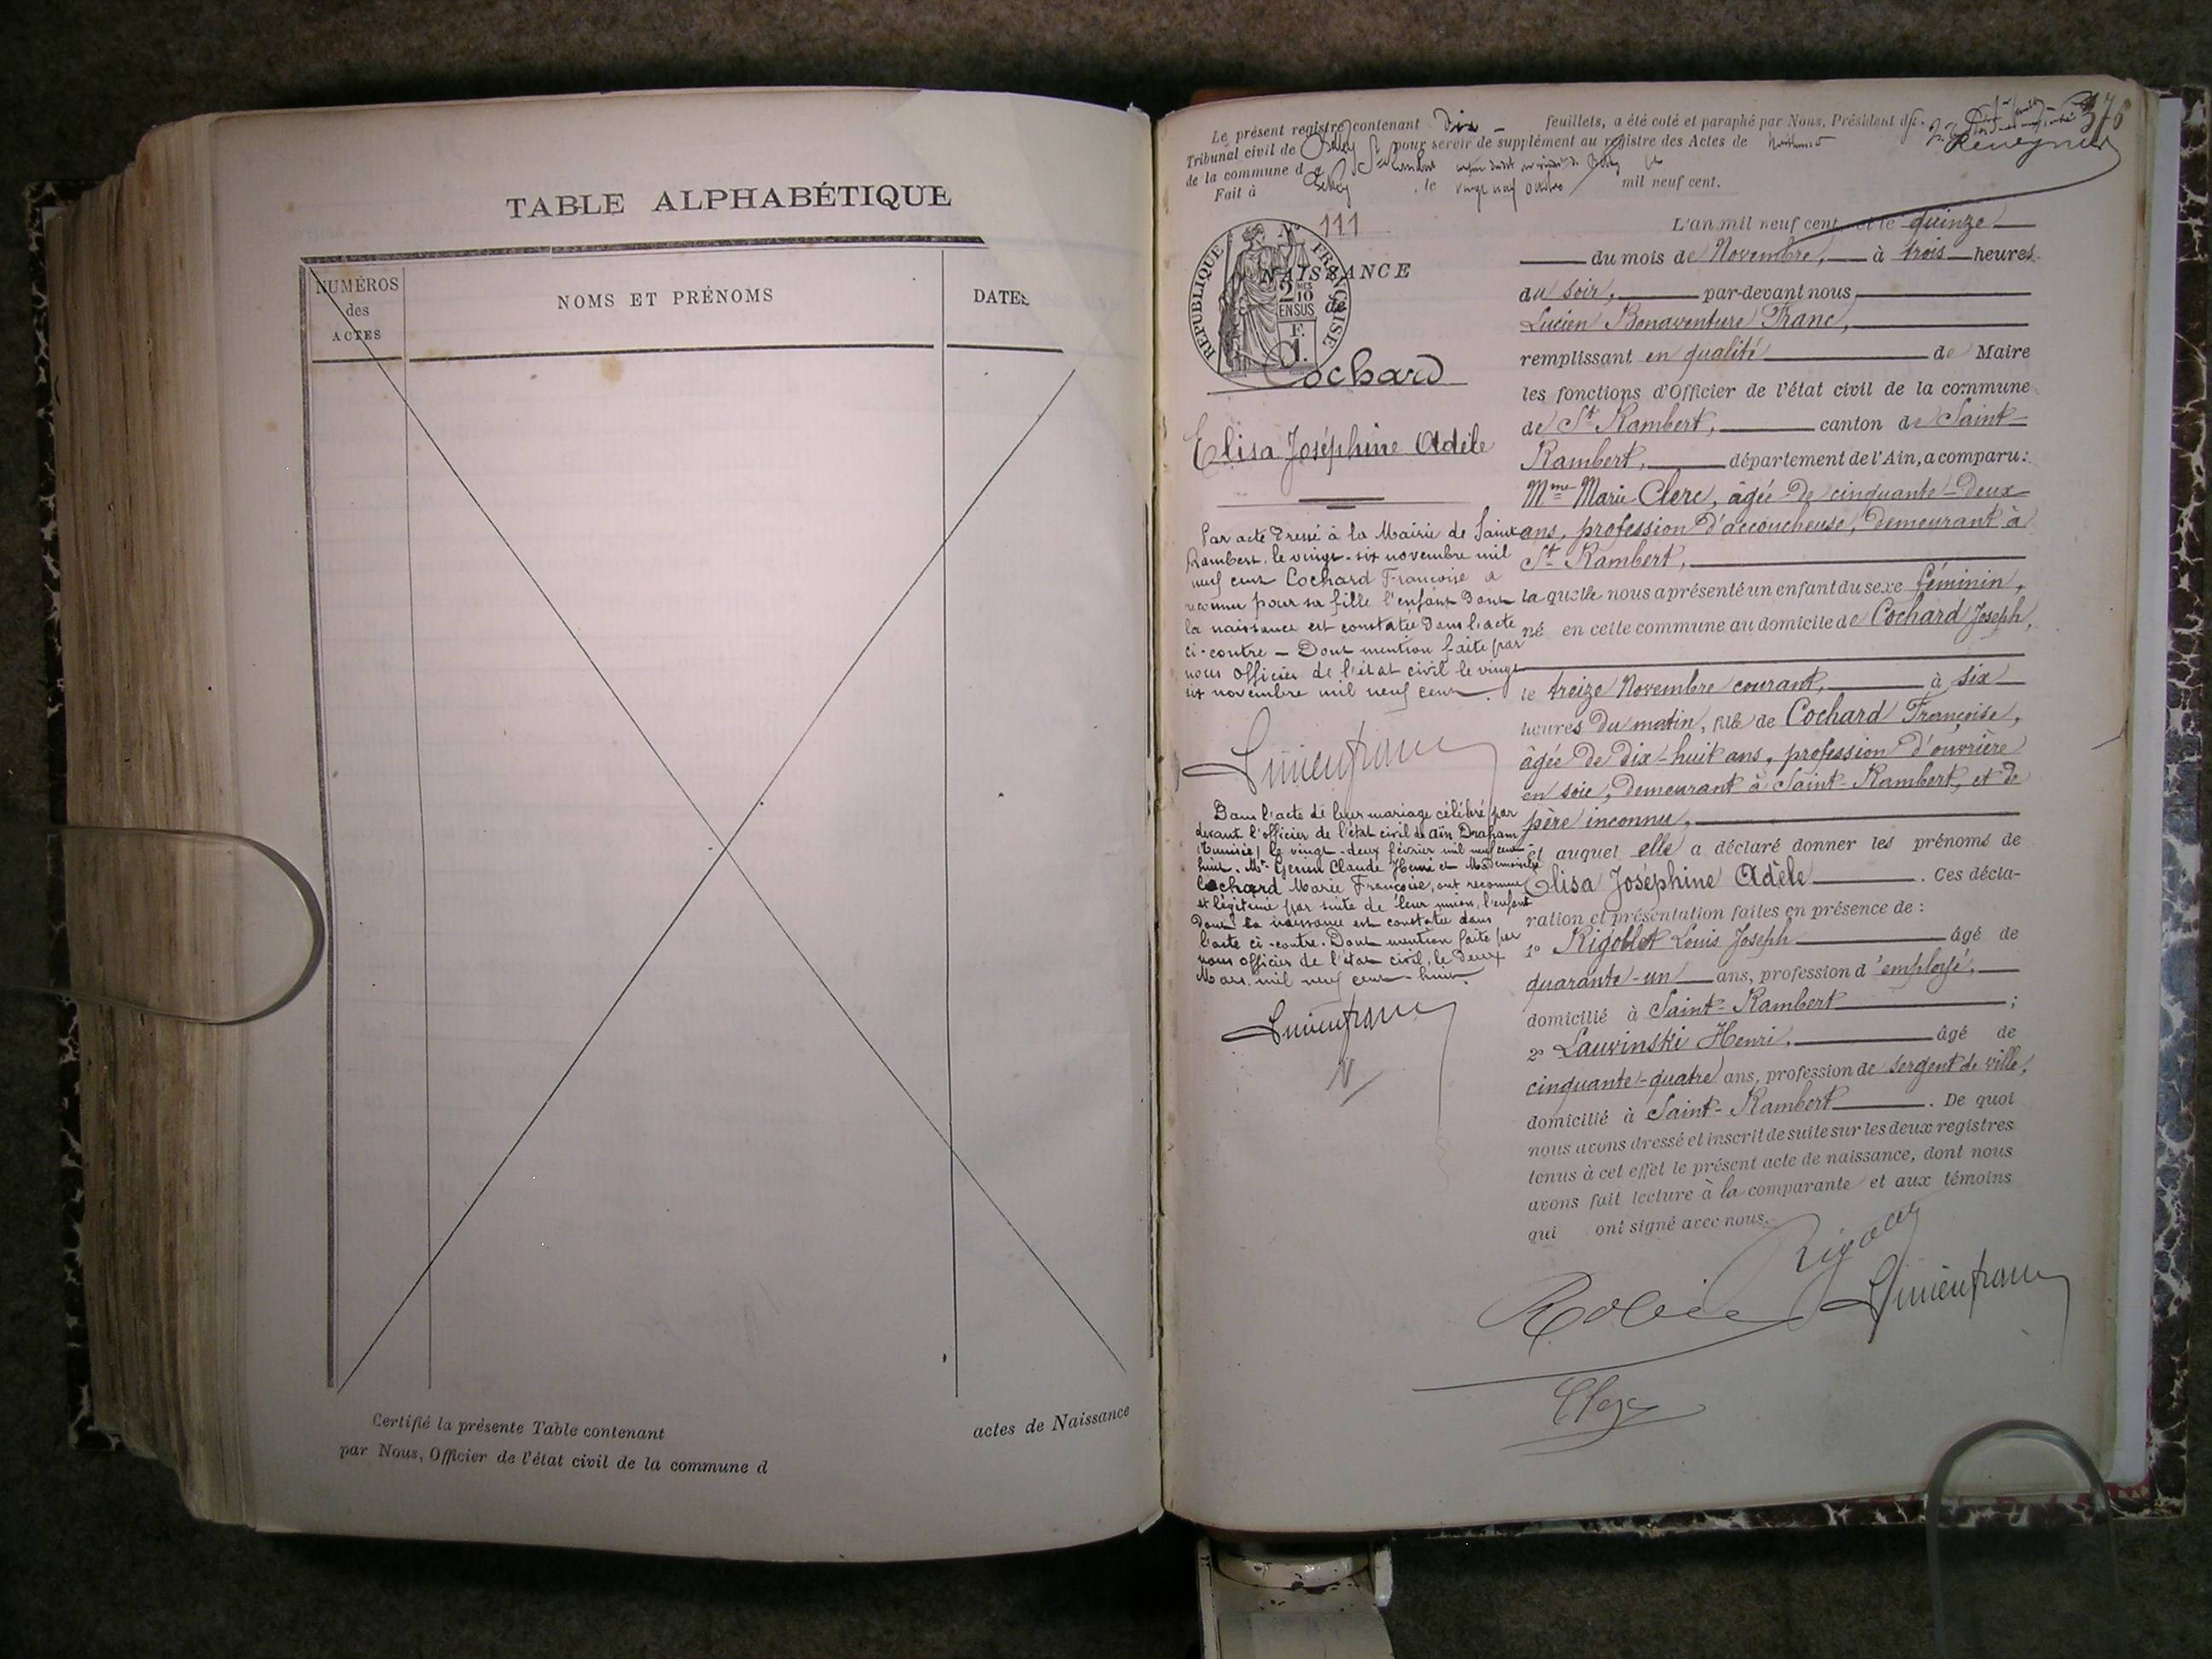 TABLE ALPHABÉTIQUE
NUMÉROS
des
ACTES
NOMS ET PRÉNOMS
DATES
Certifié la présente Table contenant
actes de Naissance
par Nous, Officier de l'état civil de la commune d
376
Le présent registre contenant Dix feuillets, a été coté et paraphé par Nous, Président du
Tribunal civil de Belley pour servir de supplément au registre des Actes de
de la commune de St Rambert
Fait à Belley, le vingt neuf octobre mil neuf cent.
111
RÉPUBLIQUE FRANÇAISE
2/10
EN SUS
NAISSANCE
de
Cochard
Elisa Joséphine Adèle
Par acte dressé à la Mairie de Saint
Rambert, le vingt-six novembre mil
neuf cent Cochard Françoise a
reconnu pour sa fille l'enfant dont
la naissance est constatée dans l'acte
ci-contre — Dont mention faite par
nous Officier de l'état civil le vingt
six novembre mil neuf cent.
Lucien Franc
Dans l'acte de leur mariage célébré par
devant l'officier de l'état civil de Aïn Draham
(Tunisie) le vingt-deux février mil neuf cent
huit. Mr. Genin Claude Henri et Mademoiselle
Cochard Marie Françoise, ont reconnu
et légitimé par suite de leur union, l'enfant
dont la naissance est constatée dans
l'acte ci-contre. Dont mention faite par
nous officier de l'état civil, le deux
Mars mil neuf cent-huit.
Lucien Franc
L'an mil neuf cent et le quinze
du mois de Novembre, à trois heures
du soir, par-devant nous
Lucien Bonaventure Franc,
remplissant en qualité de Maire
les fonctions d'Officier de l'état civil de la commune
de St Rambert, canton de Saint-
Rambert, département de l'Ain, a comparu:
Mme Marie Clerc, âgée de cinquante-deux
ans, profession d'accoucheuse, demeurant à
St Rambert,
la quelle nous a présenté un enfant du sexe féminin,
né en cette commune au domicile de Cochard Joseph,
le treize Novembre courant, à six
heures du matin, fille de Cochard Françoise,
âgée de dix-huit ans, profession d'ouvrière
en soie, demeurant à Saint-Rambert, et de
père inconnu,
et auquel elle a déclaré donner les prénoms de
Elisa Joséphine Adèle. Ces décla-
ration et présentation faites en présence de :
1o Rigollet Louis Joseph âgé de
quarante-un ans, profession d'employé,
domicilié à Saint-Rambert ;
2o Lauvinski Henri, âgé de
cinquante-quatre ans, profession de sergent de ville,
domicilié à Saint-Rambert. De quoi
nous avons dressé et inscrit de suite sur les deux registres
tenus à cet effet le présent acte de naissance, dont nous
avons fait lecture à la comparante et aux témoins
qui ont signé avec nous.
Lucien Franc
Clerc